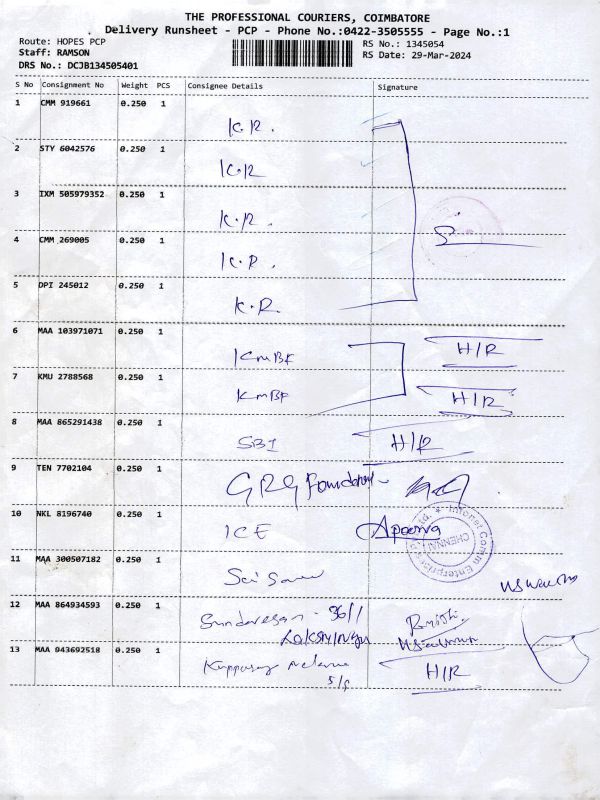 THE PROFESSIONAL COURIERS, COIMBATORE
Delivery Runsheet - PCP - Phone No.:0422-3505555 - Page No.:1
Route: HOPES PCP
Staff: RAMSON
DRS No.: DCJB134505401
RS No.: 1345054
RS Date: 29-Mar-2024
S No Consignment No Weight PCS Consignee Details Signature
1 CMM 919661 0.250 1 K.R.
2 STY 6042576 0.250 1 K.R
3 IXM 505979352 0.250 1 K.R.
4 CMM 269005 0.250 1 K.R.
5 DPI 245012 0.250 1 K.R.
6 MAA 103971071 0.250 1 KMBF H/R
7 KMU 2788568 0.250 1 KMBF H/R
8 MAA 865291438 0.250 1 SBI H/R
9 TEN 7702104 0.250 1 GRG
10 NKL 8196740 0.250 1 ICE Apoorva
Infonet Comm Enterprises CHENNAI
11 MAA 300507182 0.250 1
12 MAA 864934593 0.250 1 Sundaresan - 36/1
13 MAA 943692518 0.250 1 H/R